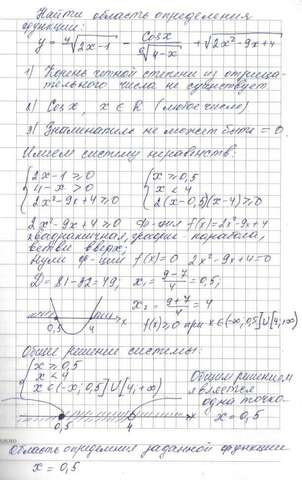 Найти область определения
функции:
y = ⁴√(2x-1) - cosx/⁶√(4-x) + √(2x²-9x+4)
1) Корень четной степени из отрица-
тельного числа не существует
2) Cosx, x ∈ R (любое число)
3) Знаменатель не может быть = 0.
Имеем систему неравенств:
{ 2x-1 ⩾ 0 { x ⩾ 0,5
4-x > 0 x < 4
2x²-9x+4 ⩾ 0 2(x-0,5)(x-4) ⩾ 0
2x²-9x+4 ⩾ 0 ф-ция f(x)=2x²-9x+4
квадратичная, график парабола,
ветви вверх;
Нули ф-ции f(x)=0 2x²-9x+4=0
D = 81-32=49, x₁ = (9-7)/4 = 0,5,
x₂ = (9+7)/4 = 4
0,5 4 x f(x) ⩾ 0 при x∈(-∞; 0,5]∪[4; +∞)
Общее решение системы:
{ x ⩾ 0,5
x < 4
x ∈ (-∞; 0,5]∪[4; +∞)
Общим решением
является
одна точка
x = 0,5
0,5 4 x
Область определения заданной функции
x = 0,5